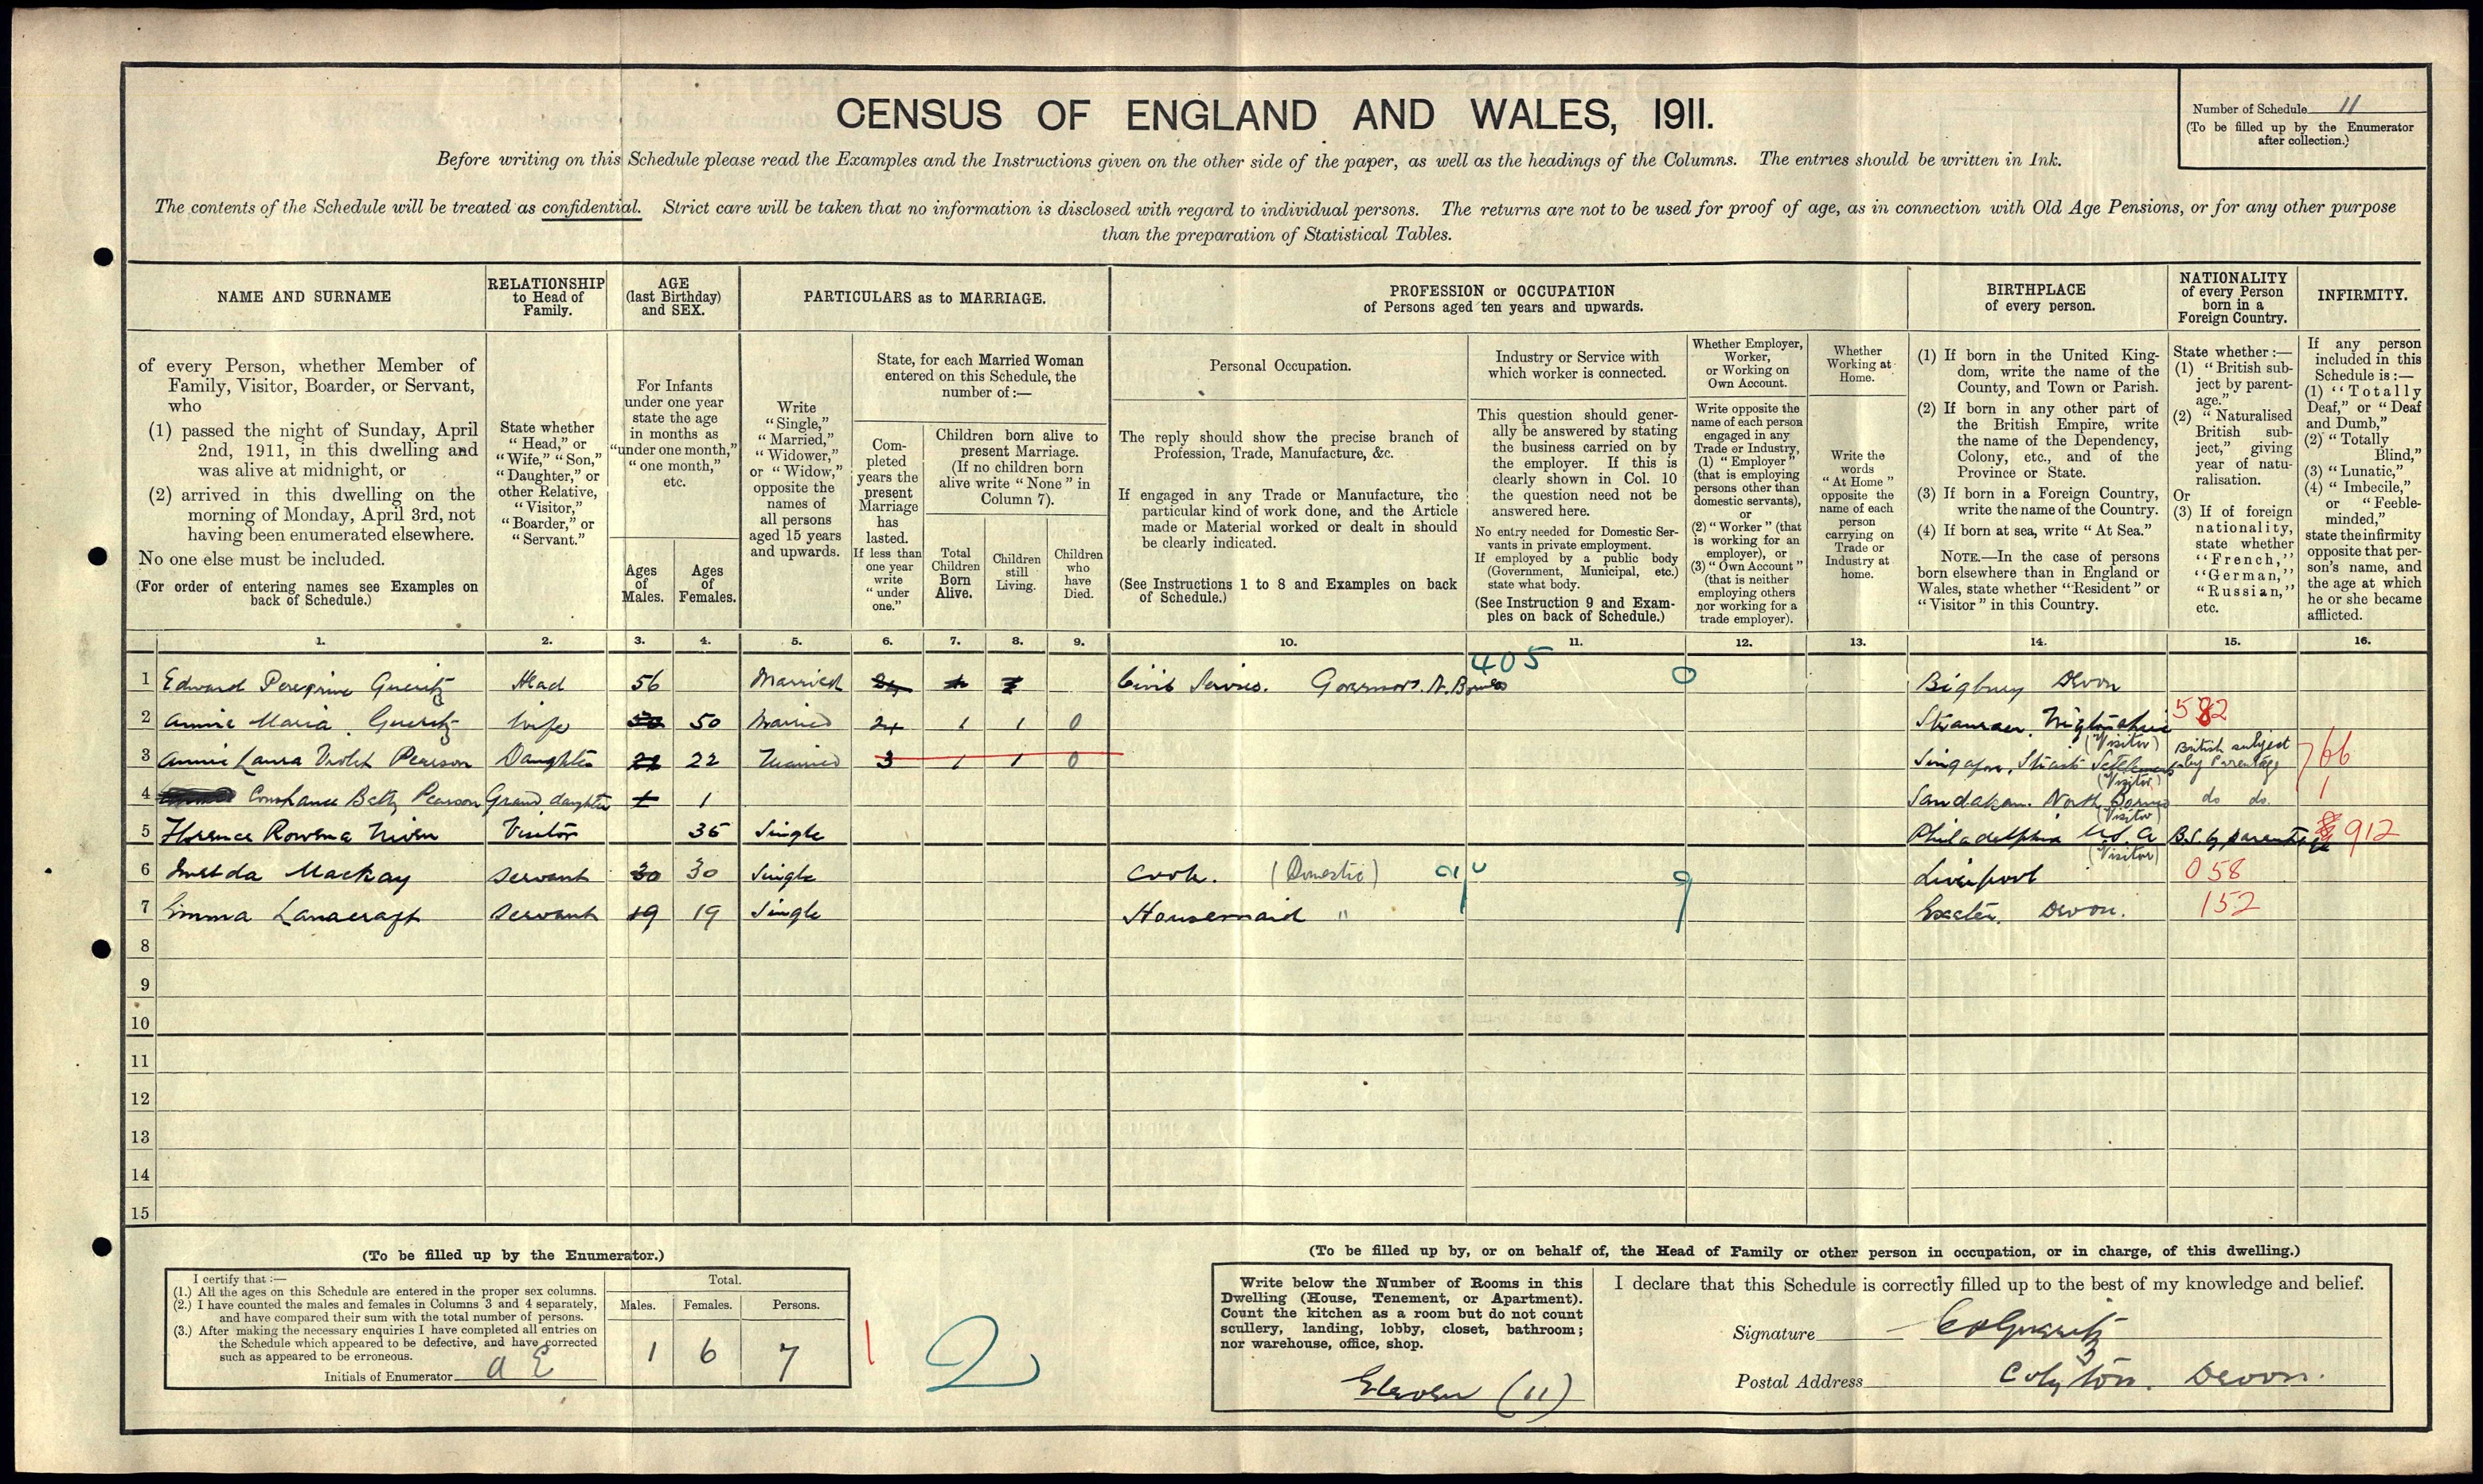 CENSUS OF ENGLAND AND WALES, 1911.
Number of Schedule 11
(To be filled up by the Enumerator after collection.)
Before writing on this Schedule please read the Examples and the Instructions given on the other side of the paper, as well as the headings of the Columns. The entries should be written in Ink.
The contents of the Schedule will be treated as confidential. Strict care will be taken that no information is disclosed with regard to individual persons. The returns are not to be used for proof of age, as in connection with Old Age Pensions, or for any other purpose
than the preparation of Statistical Tables.
NAME AND SURNAME
of every Person, whether Member of
Family, Visitor, Boarder, or Servant,
who
(1) passed the night of Sunday, April
2nd, 1911, in this dwelling and
was alive at midnight, or
(2) arrived in this dwelling on the
morning of Monday, April 3rd, not
having been enumerated elsewhere.
No one else must be included.
(For order of entering names see Examples on
back of Schedule.)
RELATIONSHIP
to Head of
Family.
State whether
"Head," or
"Wife," "Son,"
"Daughter," or
other Relative,
"Visitor,"
"Boarder," or
"Servant."
AGE
(last Birthday)
and SEX.
For Infants
under one year
state the age
in months as
"under one month,"
"one month,"
etc.
Ages
of
Males.
Ages
of
Females.
PARTICULARS as to MARRIAGE.
Write
"Single,"
"Married,"
"Widower,"
or "Widow,"
opposite the
names of
all persons
aged 15 years
and upwards.
State, for each Married Woman
entered on this Schedule, the
number of:—
Com-
pleted
years the
present
Marriage
has
lasted.
If less than
one year
write
"under
one."
Children born alive to
present Marriage.
(If no children born
alive write "None" in
Column 7).
Total
Children
Born
Alive.
Children
still
Living.
Children
who
have
Died.
PROFESSION or OCCUPATION
of Persons aged ten years and upwards.
Personal Occupation.
The reply should show the precise branch of
Profession, Trade, Manufacture, &c.
If engaged in any Trade or Manufacture, the
particular kind of work done, and the Article
made or Material worked or dealt in should
be clearly indicated.
(See Instructions 1 to 8 and Examples on back
of Schedule.)
Industry or Service with
which worker is connected.
This question should gener-
ally be answered by stating
the business carried on by
the employer. If this is
clearly shown in Col. 10
the question need not be
answered here.
No entry needed for Domestic Ser-
vants in private employment.
If employed by a public body
(Government, Municipal, etc.)
state what body.
(See Instruction 9 and Exam-
ples on back of Schedule.)
Whether Employer,
Worker,
or Working on
Own Account.
Write opposite the
name of each person
engaged in any
Trade or Industry,
(1) "Employer"
(that is employing
persons other than
domestic servants),
or
(2) "Worker" (that
is working for an
employer), or
(3) "Own Account"
(that is neither
employing others
nor working for a
trade employer).
Whether
Working at
Home.
Write the
words
"At Home"
opposite the
name of each
person
carrying on
Trade or
Industry at
home.
BIRTHPLACE
of every person.
(1) If born in the United King-
dom, write the name of the
County, and Town or Parish.
(2) If born in any other part of
the British Empire, write
the name of the Dependency,
Colony, etc., and of the
Province or State.
(3) If born in a Foreign Country,
write the name of the Country.
(4) If born at sea, write "At Sea."
NOTE.—In the case of persons
born elsewhere than in England or
Wales, state whether "Resident" or
"Visitor" in this Country.
NATIONALITY
of every Person
born in a
Foreign Country.
State whether:—
(1) "British sub-
ject by parent-
age."
(2) "Naturalised
British sub-
ject," giving
year of natu-
ralisation.
Or
(3) If of foreign
nationality,
state whether
"French,"
"German,"
"Russian,"
etc.
INFIRMITY.
If any person
included in this
Schedule is:—
(1) "Totally
Deaf," or "Deaf
and Dumb,"
(2) "Totally
Blind,"
(3) "Lunatic,"
(4) "Imbecile,"
or "Feeble-
minded,"
state the infirmity
opposite that per-
son's name, and
the age at which
he or she became
afflicted.
1. 2. 3. 4. 5. 6. 7. 8. 9. 10. 11. 12. 13. 14. 15. 16.
405
1 Edward Peregrine Gueritz Head 56 Married 24 1 1 Civil Service. Governor. N. Borneo 0 Bigbury Devon
2 Annie Maria Gueritz Wife 50 50 Married 24 1 1 0 Stranraer. Wigtonshire 582
(Visitor)
3 Annie Laura Violet Pearson Daughter 22 22 Married 3 1 1 0 Singapore, Straits Settlements British subject by Parentage 766
(Visitor)
4 Constance Betty Pearson Grand daughter 1 1 Sandakan. North Borneo do do. 1
(Visitor)
5 Florence Rowena Niven Visitor 35 Single Philadelphia U.S.A B.S. by parentage 912
(Visitor)
6 Mackay Servant 30 30 Single Cook. (Domestic) Liverpool 058
7 Emma Lanacraft Servant 19 19 Single Housemaid " Exeter. Devon. 152
8
9
10
11
12
13
14
15
(To be filled up by the Enumerator.)
I certify that:—
(1.) All the ages on this Schedule are entered in the proper sex columns.
(2.) I have counted the males and females in Columns 3 and 4 separately,
and have compared their sum with the total number of persons.
(3.) After making the necessary enquiries I have completed all entries on
the Schedule which appeared to be defective, and have corrected
such as appeared to be erroneous.
Initials of Enumerator A E
Total.
Males. Females. Persons.
1 6 7
1 2
(To be filled up by, or on behalf of, the Head of Family or other person in occupation, or in charge, of this dwelling.)
Write below the Number of Rooms in this
Dwelling (House, Tenement, or Apartment).
Count the kitchen as a room but do not count
scullery, landing, lobby, closet, bathroom;
nor warehouse, office, shop.
Eleven (11)
I declare that this Schedule is correctly filled up to the best of my knowledge and belief.
Signature EPGueritz
Postal Address Colyton. Devon.